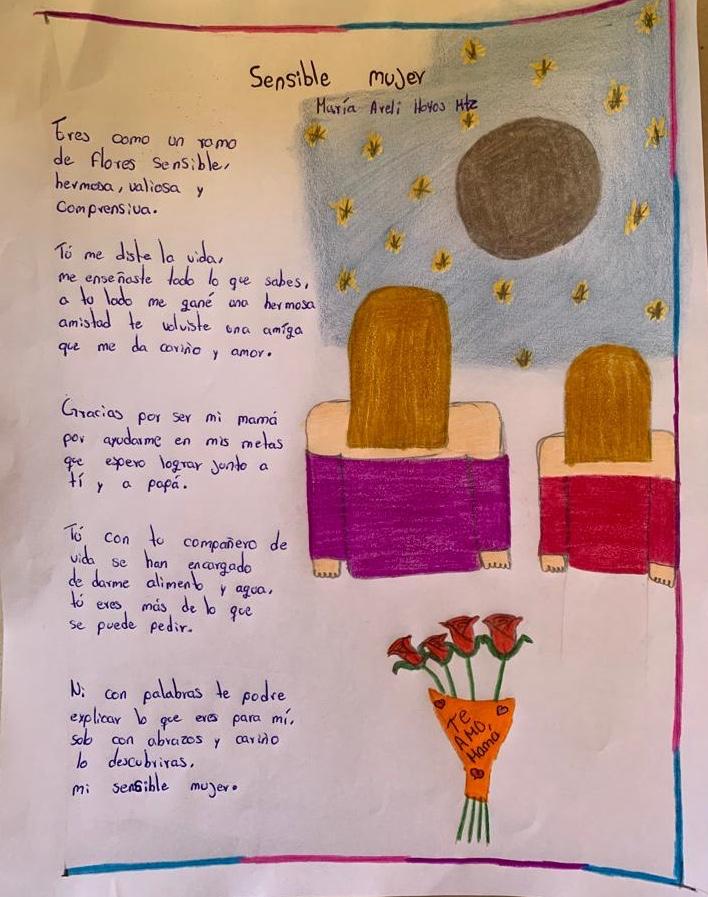 Sensible mujer
María Areli Hoyos Mtz
Eres como un ramo
de flores sensible,
hermosa, valiosa y
Comprensiva.
Tú me diste la vida,
me enseñaste todo lo que sabes,
a tu lado me gané una hermosa
amistad te volviste una amiga
que me da cariño y amor.
Gracias por ser mi mamá
por ayudarme en mis metas
que espero lograr junto a
tí y a papá.
Tú con tu compañero de
vida se han encargado
de darme alimento y agua,
tú eres más de lo que
se puede pedir.
Ni con palabras te podre
explicar lo que eres para mí,
solo con abrazos y cariño
lo descubriras,
mi sensible mujer.
TE
AMO,
Mamá